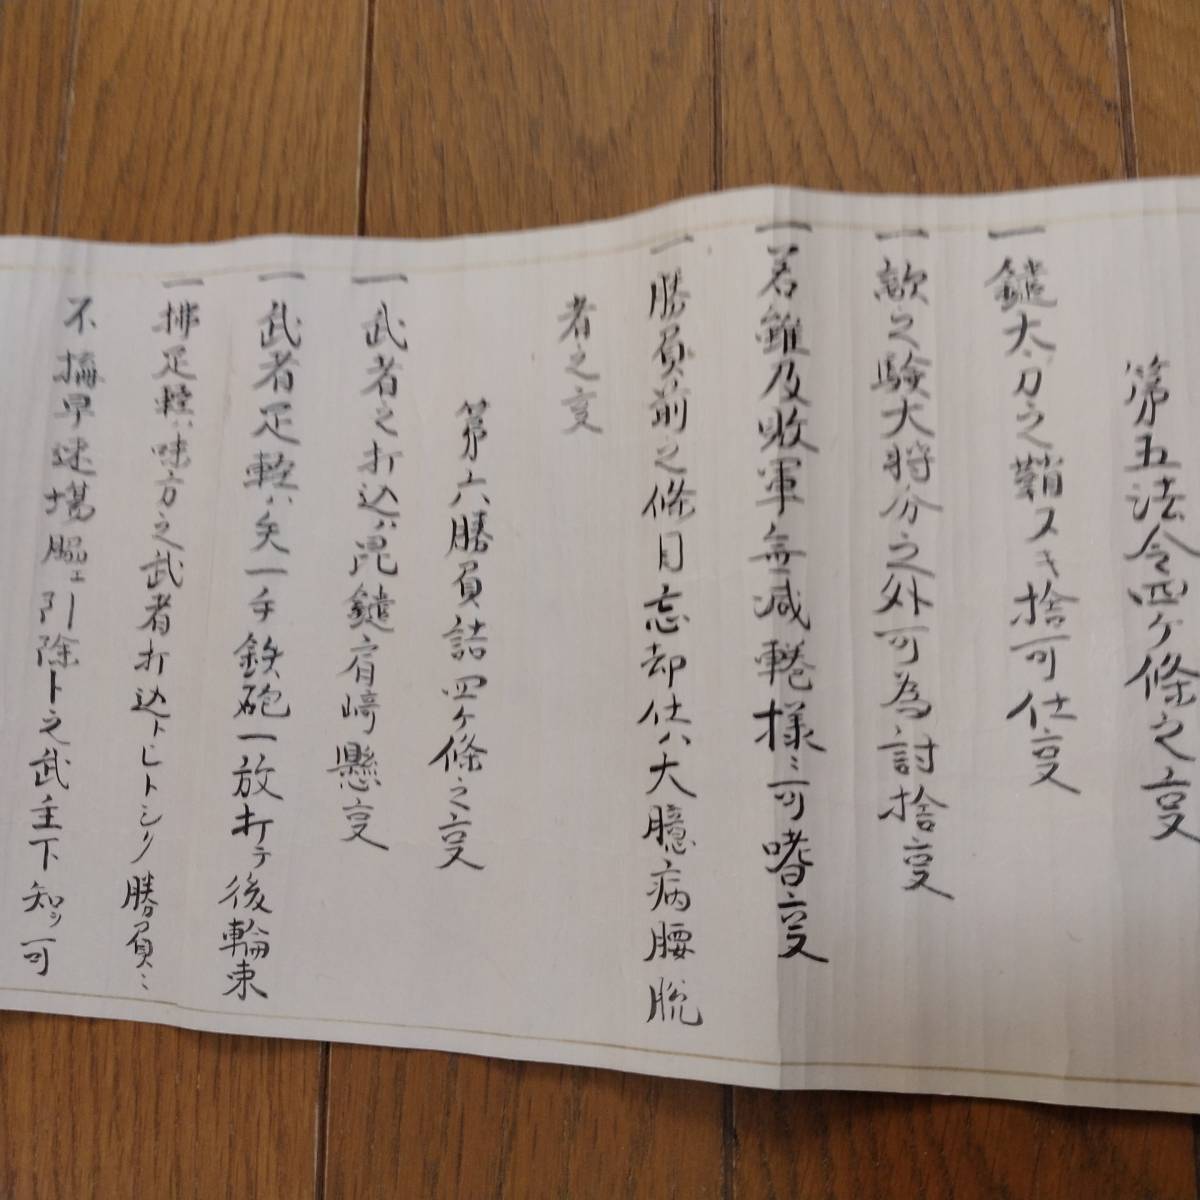 第五法令四ケ條之㕝
一鑓太刀之鞘ヌキ捨可仕㕝
一敵之験大将分之外可為討捨㕝
一若雖及敗軍無減軽様ニ可嗜㕝
一勝負前之條目忘却仕ハ大臆病腰脱
者之㕝
第六勝負詰四ケ條之㕝
一武者之打込ハ鑓肩崎懸㕝
一武者足軽ハ矢一手鉄砲一放打テ後輪束
一拂足軽ハ味方之武者打込トヒトシク勝負ニ
不搆早速場脇エ引除ト之武主下知ヲ可